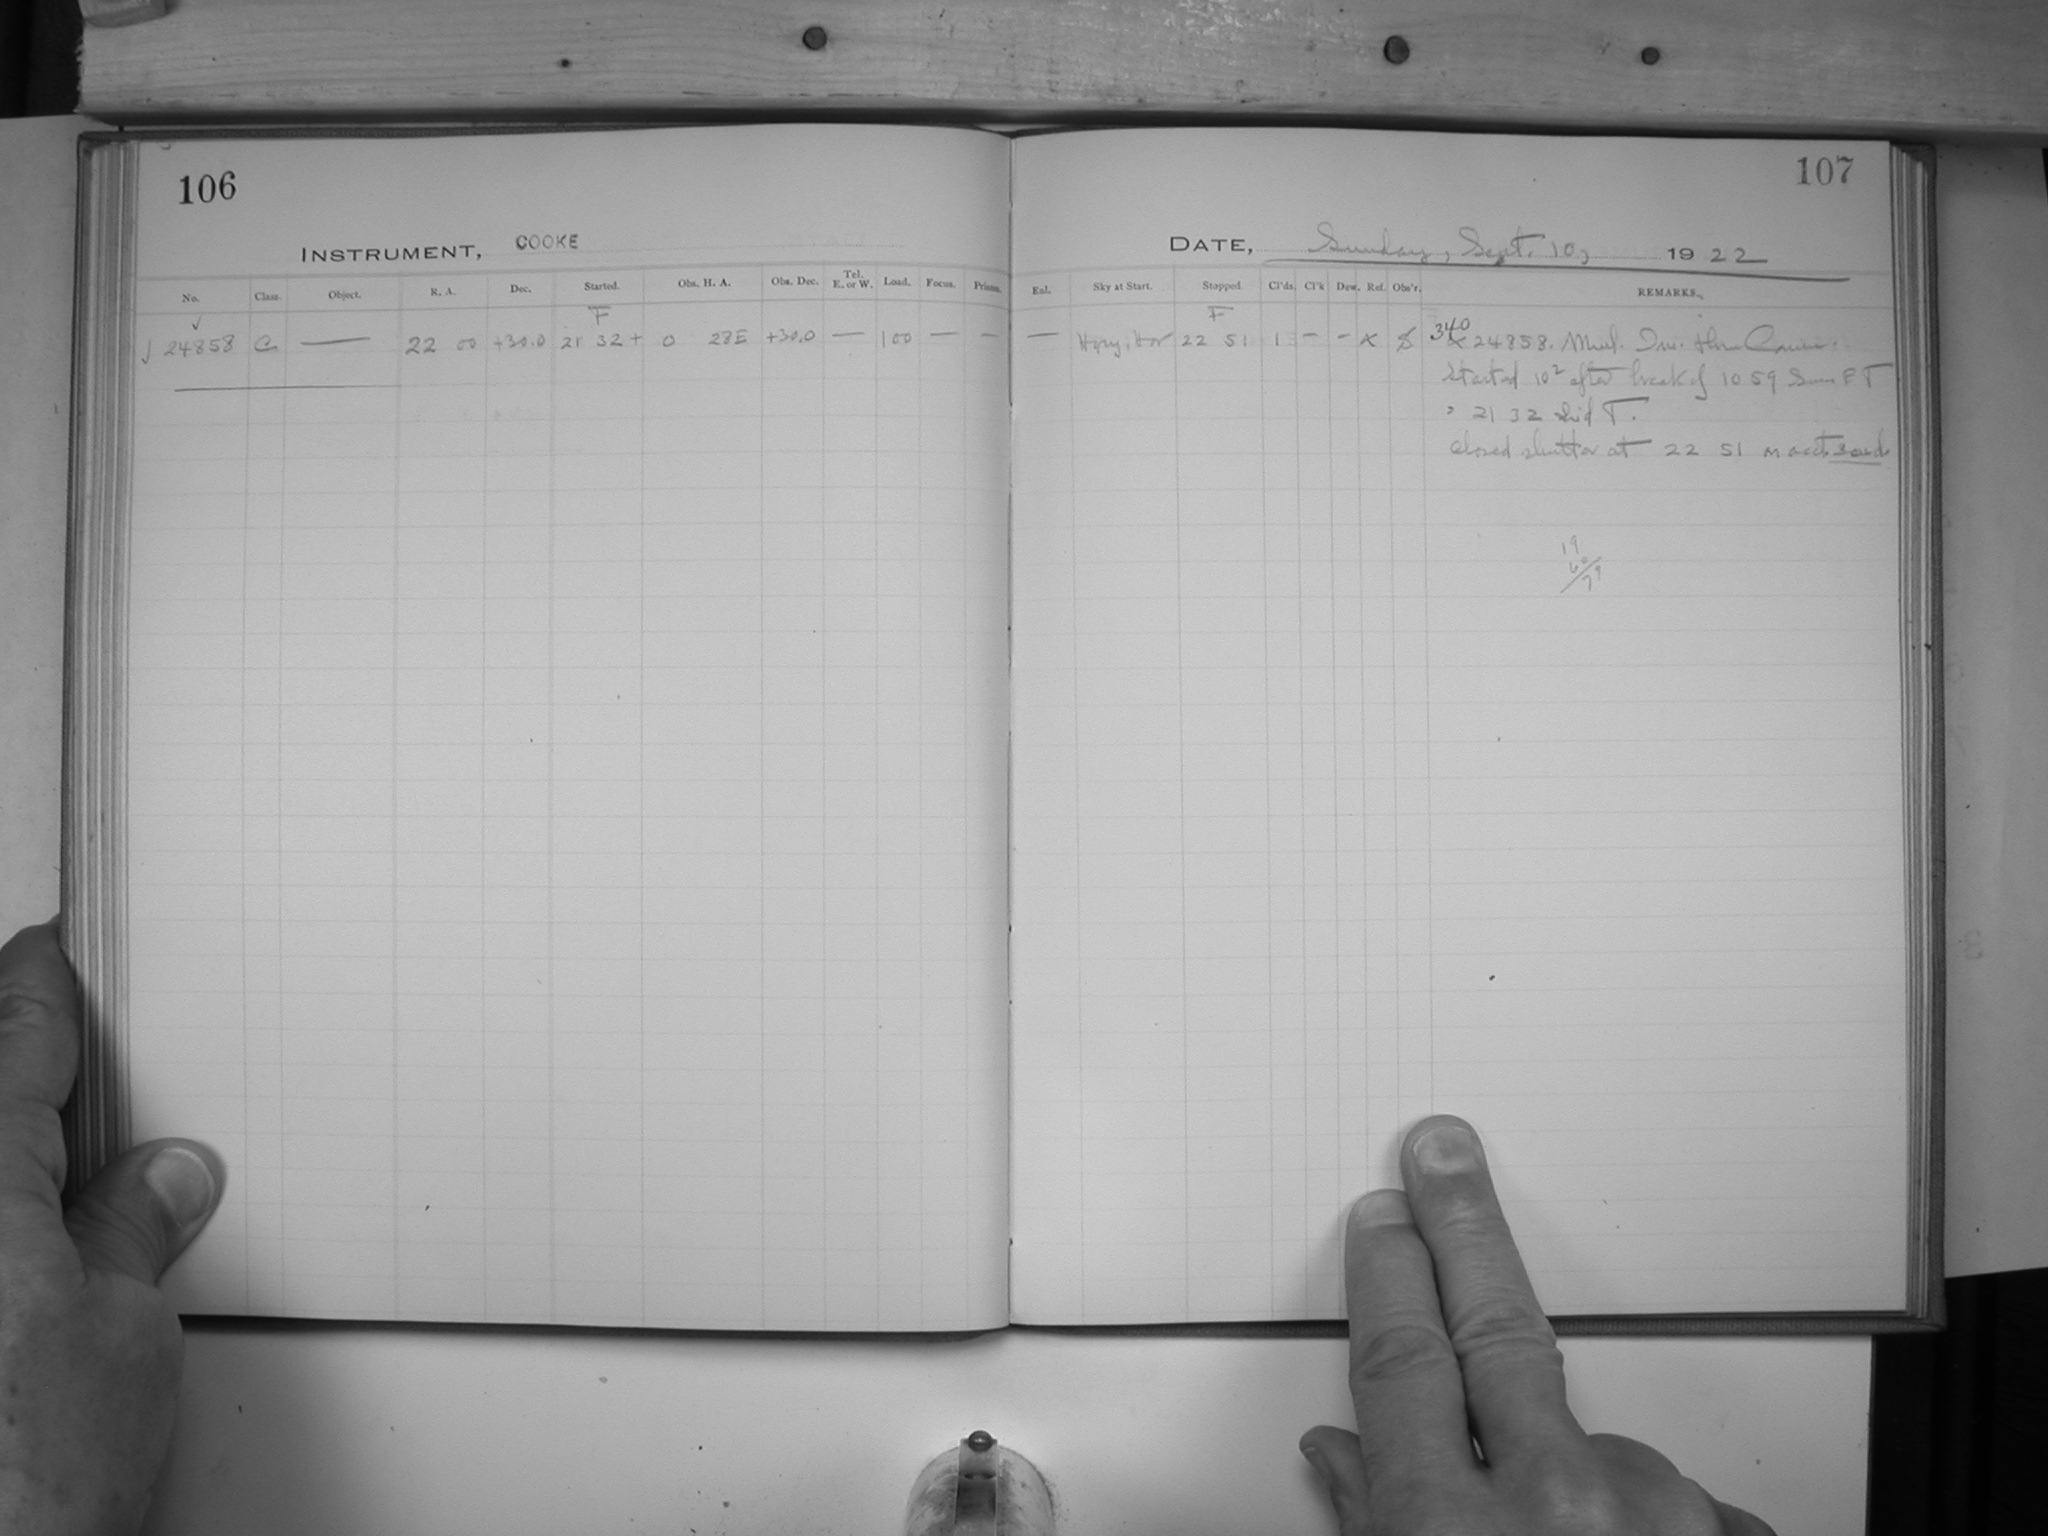 106
INSTRUMENT, COOKE
No. Class. Object. R. A. Dec. Started. Obs. H. A. Obs. Dec. Tel. E. or W. Load. Focus. Prisms.
F
24858 C — 22 00 +30.0 21 32+ 0 28E +30.0 — 100 — —
107
DATE, Sunday, Sept. 10, 1922
Exl. Sky at Start. Stopped. Cl'ds. Cl'k Dew. Ref. Obs'r. REMARKS.
F
— Hazy, Hor 22 51 1 – – 340 24858.
Started 10 after break of 10 59 T
= 21 32 Sid T.
Closed shutter at 22 51
19
60
79